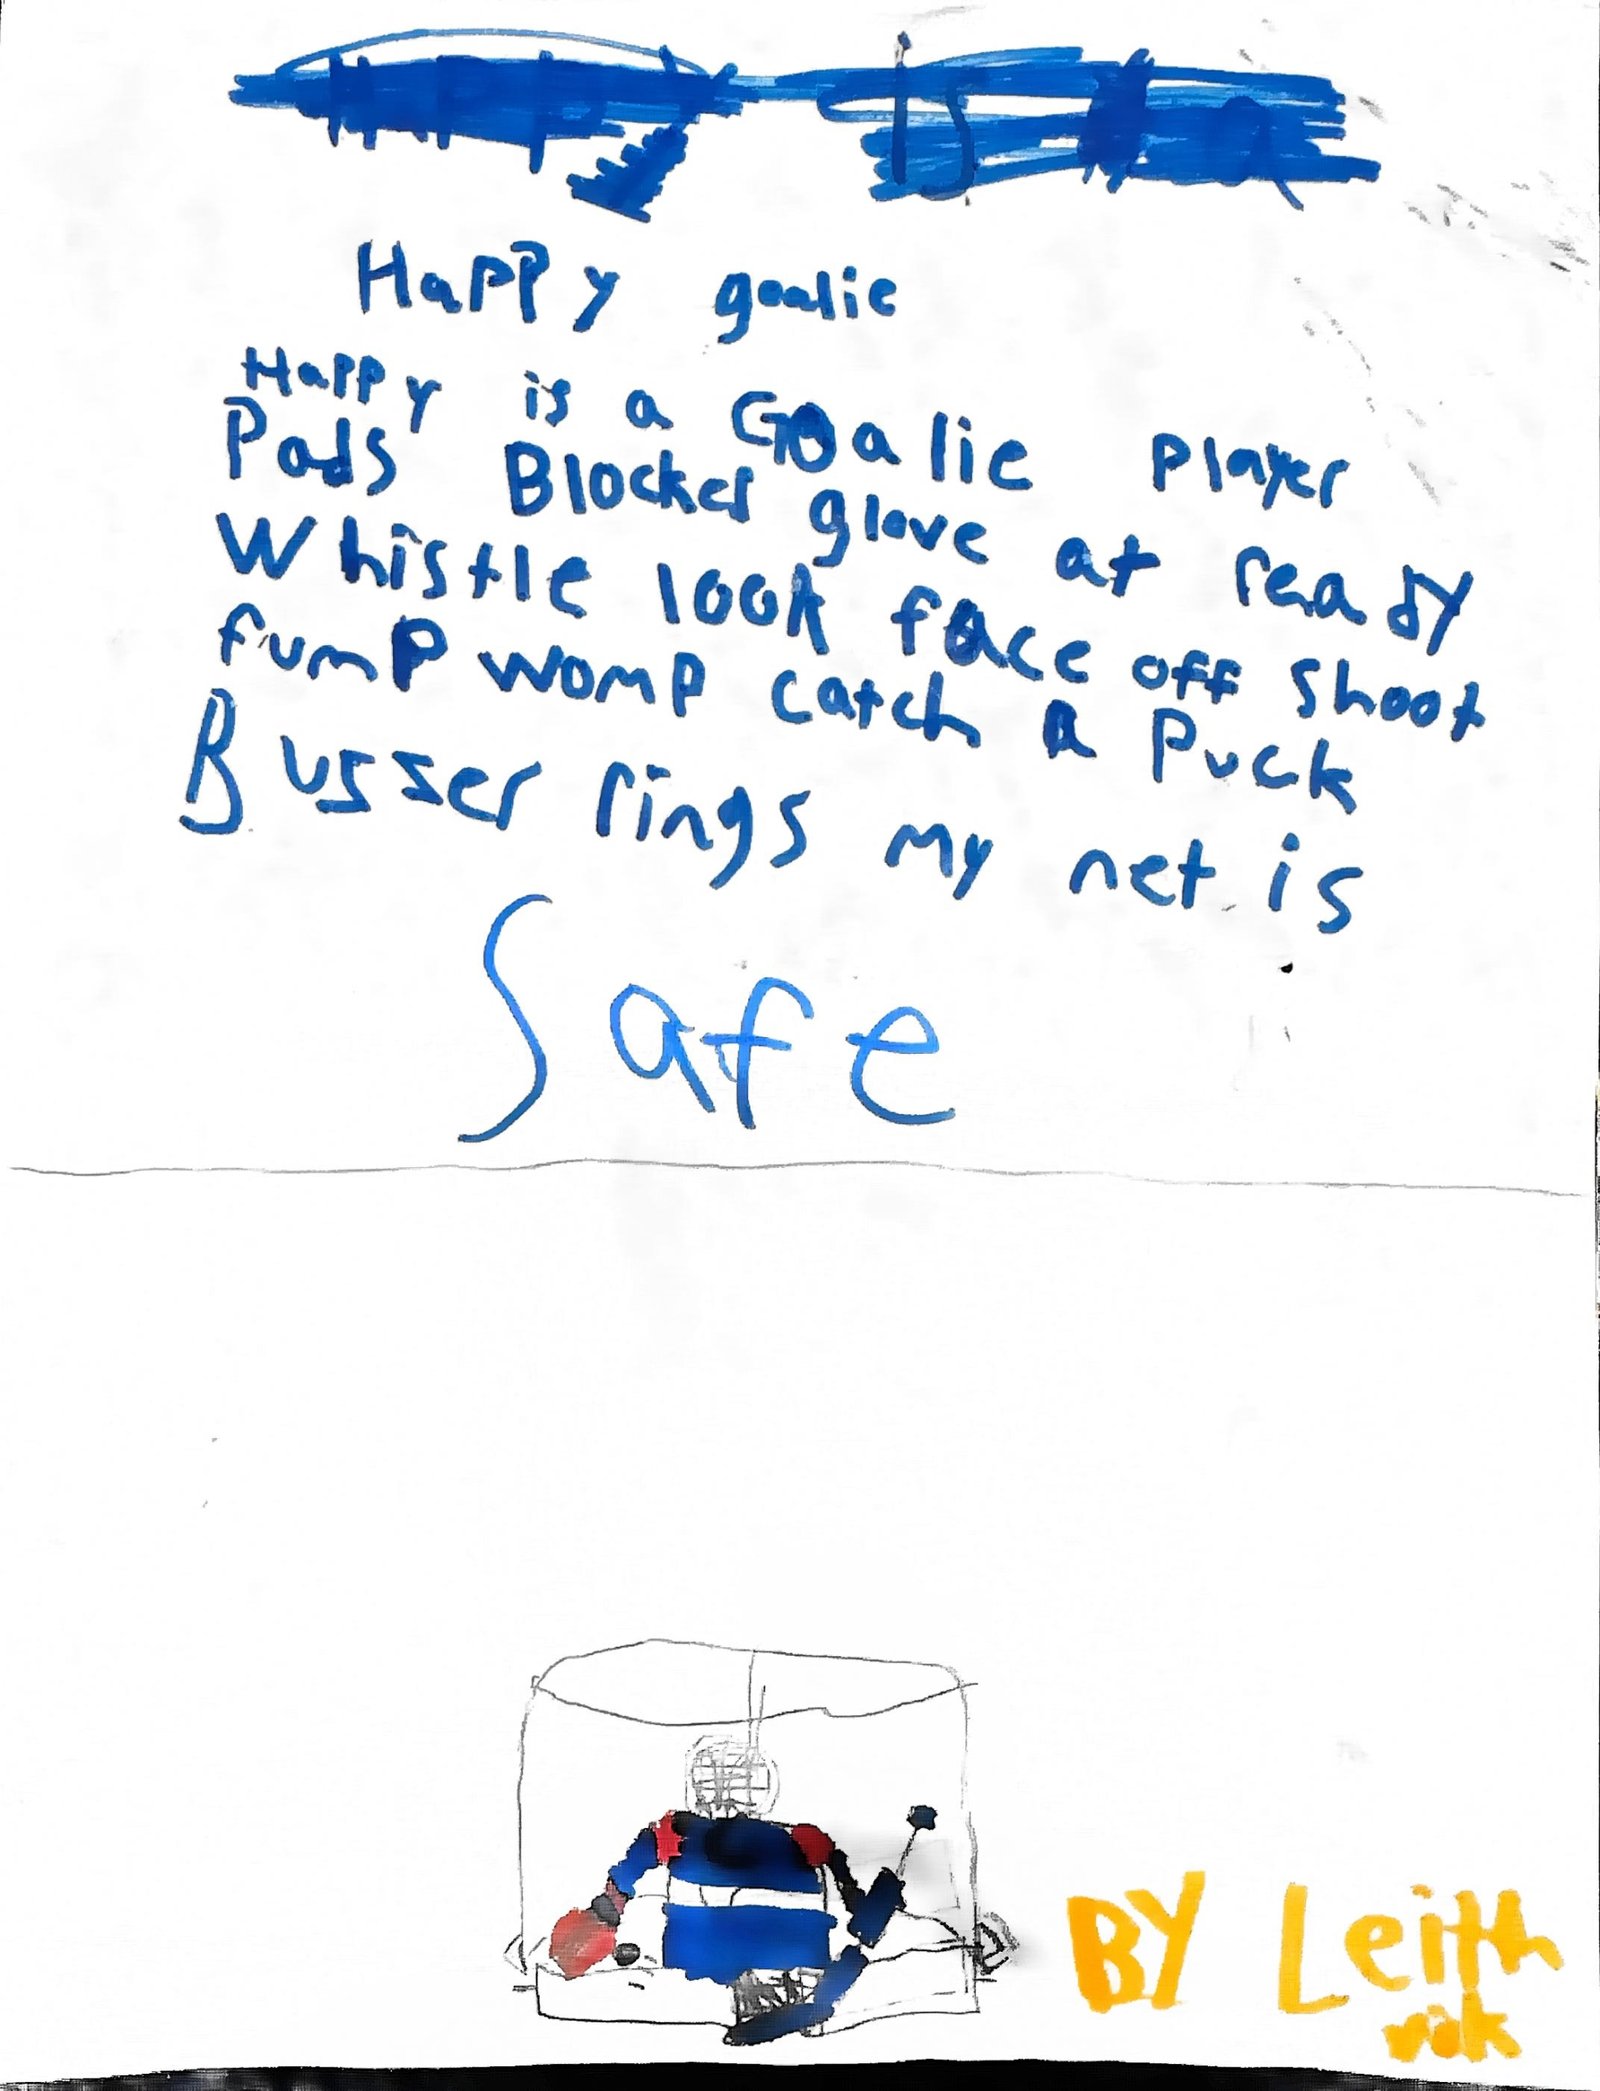 Happy goalie
Happy is a Goalie player
Pads Blocker glove at ready
Whistle look face off shoot
fump womp catch a Puck
Busser rings my net is
Safe
BY Leith